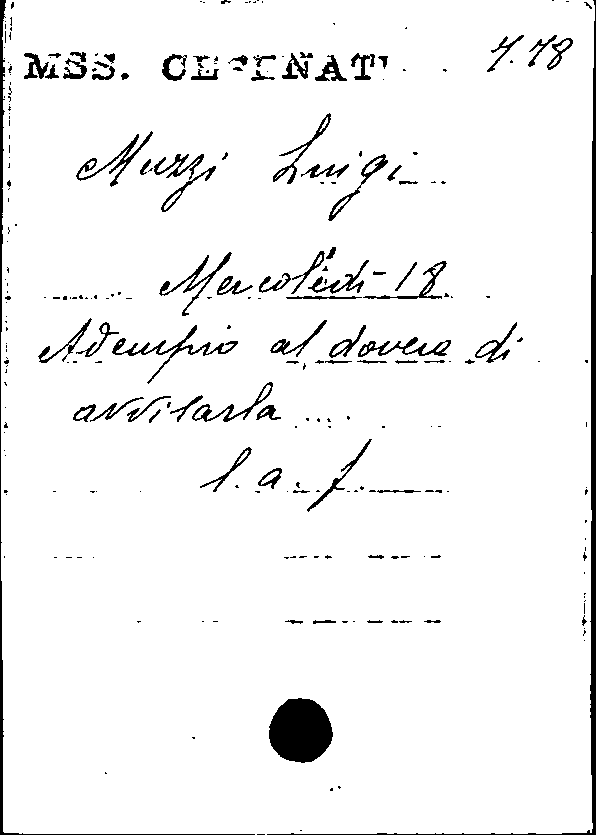 MSS. CESENATI 7.78
Muzzi Luigi
Mercoledì 18
Adempio al dovere di
avvisarla ....
l. a. f.